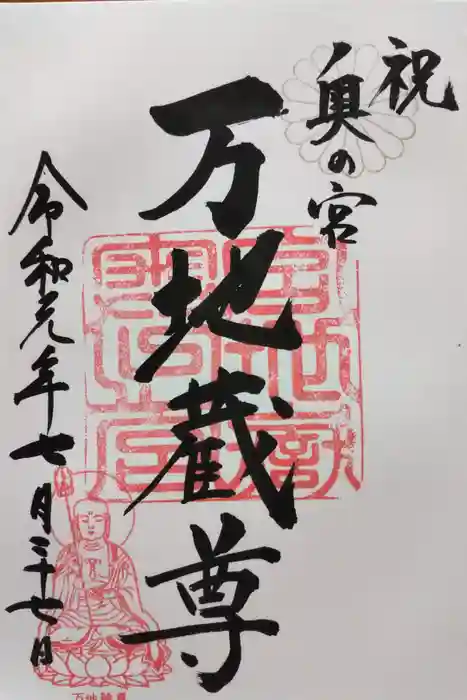 祝
奥の宮
万地蔵尊
令和元年七月二十七日
万地蔵尊